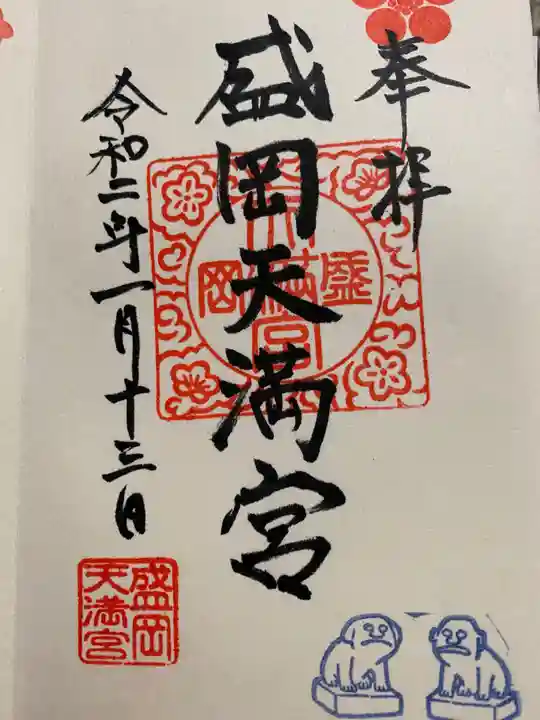 奉拝
盛岡天満宮
令和二年一月十三日
盛岡
天満宮
盛岡
天満宮